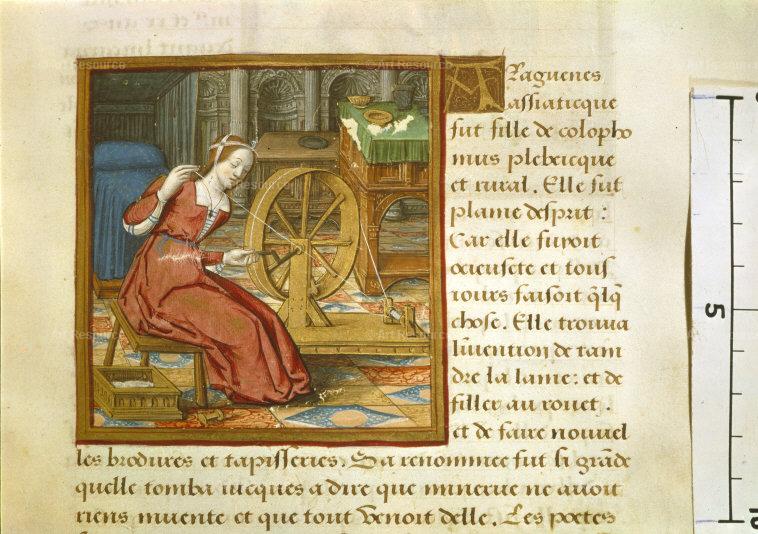 Araguenes
assiaticque
fut fille de colopho
mus plebeicque
et rural. Elle fut
plaine desprit :
Car elle fuyoit
ocieusete et tous
iours faisoit q̃lq̃
chose. Elle trouua
linuention de tain
dre la laine: et de
filler au rouet .
et de faire nouuel
les brodures et tapisseries. Sa renommee fut si grãde
quelle tomba iucques a dire que minerue ne auoit
riens inuente et que tout venoit delle. Les poetes
5
10
Art Resource